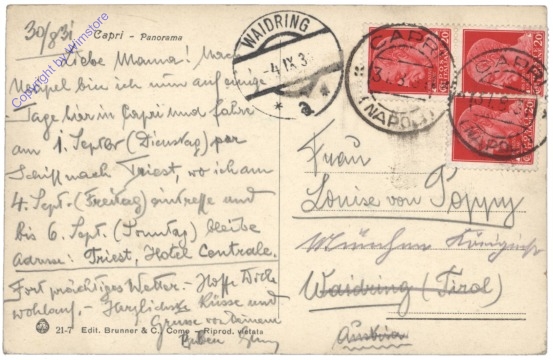 30/8 31
Capri - Panorama
Copyright by Wimstore
Liebe Mama! Nach
Neapel bin ich nun auf einige
Tage hier in Capri und fahre
am 1. Septbr (Dienstag) per
Schiff nach Triest, wo ich am
4. Sept. (Freitag) eintreffe und
bis 6. Sept. (Sonntag) bleibe
Adresse: Triest, Hotel Centrale.
Fort prächtiges Wetter. - Hoffe Dich
wohlauf. - Herzlichste Küsse und
Grüsse von Deinem
21-7 Edit. Brunner & C., Como - Riprod. vietata
WAIDRING
-4 IX 3
* a *
CAPRI
(NAPOLI)
CAPRI
(NAPOLI)
20
20
20
Frau
Louise von Poppy
München
Waidring (Tirol)
Austria